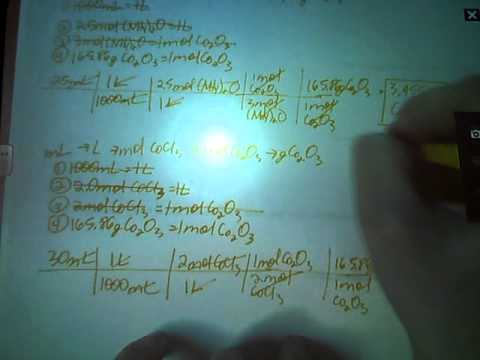 ① 1000mL = 1L
② 2.5mol (NH4)2O = 1L
③ 3mol (NH4)2O = 1mol Co2O3
④ 165.86g Co2O3 = 1mol Co2O3
25mL | 1L | 2.5mol (NH4)2O | 1mol Co2O3 | 165.86g Co2O3 =
1000mL | 1L | 3mol (NH4)2O | 1mol Co2O3
mL → L → mol CoCl3 Co2O3 → g Co2O3
① 1000mL = 1L
② 2.0mol CoCl3 = 1L
③ 2mol CoCl3 = 1mol Co2O3
④ 165.86g Co2O3 = 1mol Co2O3
30mL | 1L | 2mol CoCl3 | 1mol Co2O3 | 165.86
1000mL | 1L | 2mol CoCl3 | 1mol Co2O3